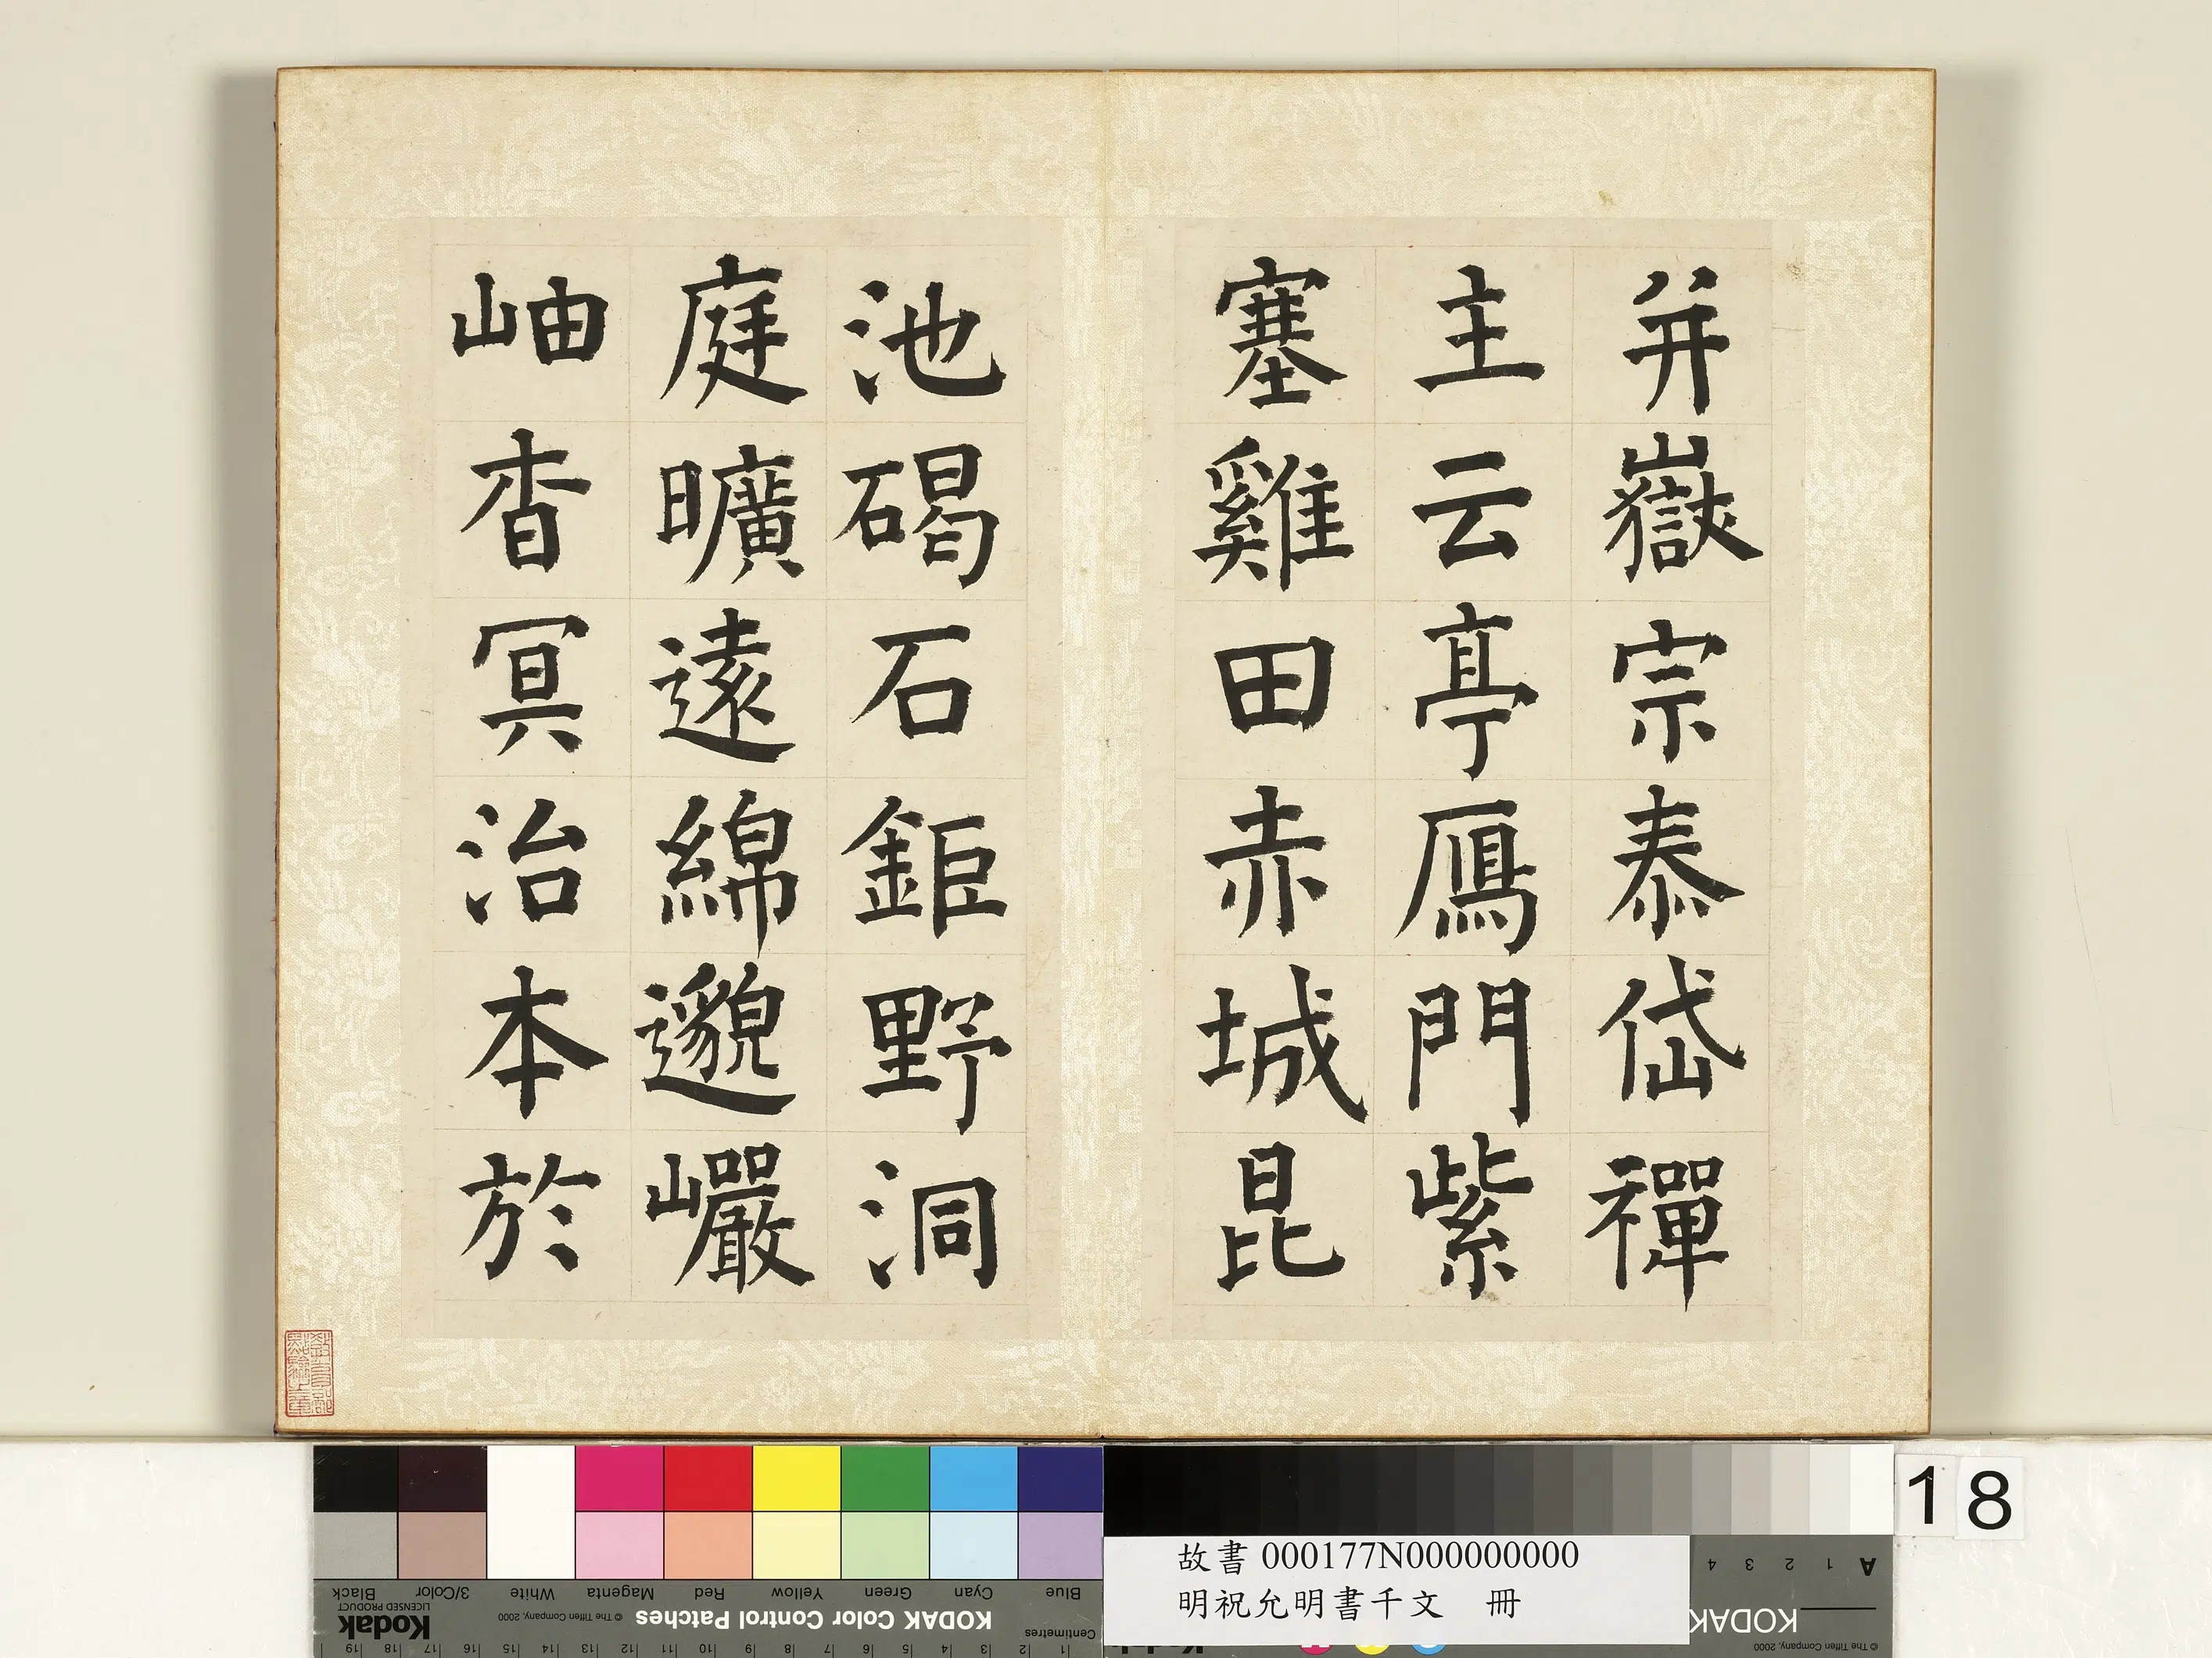 并嶽宗泰岱禪
主云亭鴈門紫
塞雞田赤城昆
池碣石鉅野洞
庭曠遠綿邈巖
岫杳冥治本於
18
故書 000177N000000000
明祝允明書千文 冊
Black 3/Color White Magenta Red Yellow Green Cyan Blue
Kodak
LICENSED PRODUCT
© The Tiffen Company, 2000
KODAK Color Control Patches
Centimetres
1 2 3 4 5 6 7 8 9 10 11 12 13 14 15 16 17 18 19
A 1 2 3 4
KODAK
© The Tiffen Company, 2000